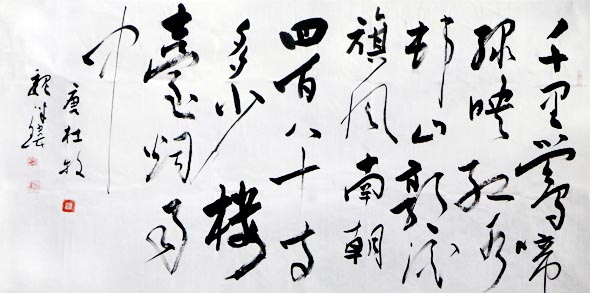 千里鶯啼
绿映红水
村山郭酒
旗风南朝
四百八十寺
多少樓
臺烟雨
中
唐杜牧